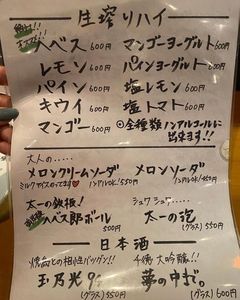 生搾りハイ
絶対!オススメ!!
へベス 600円 マンゴーヨーグルト 600円
レモン 600円 パインヨーグルト 600円
パイン 600円 塩レモン 600円
キウイ 600円 塩トマト 600円
マンゴー 600円 ⊙全種類ノンアルコールに出来ます!!
大人の・・・・・
メロンクリームソーダ メロンソーダ
ミルクアイスのってます♥ ノンアルOK! 550円 ノンアルOK! 450円
太一の鉄板! シュワシュワ・・・・・
へべス郎ボール 500円 太一の泡 (グラス) 550円
日本酒
焼鳥との相性バツグン!!
玉乃光 (グラス) 550円 夢の中まで。 (グラス) 600円